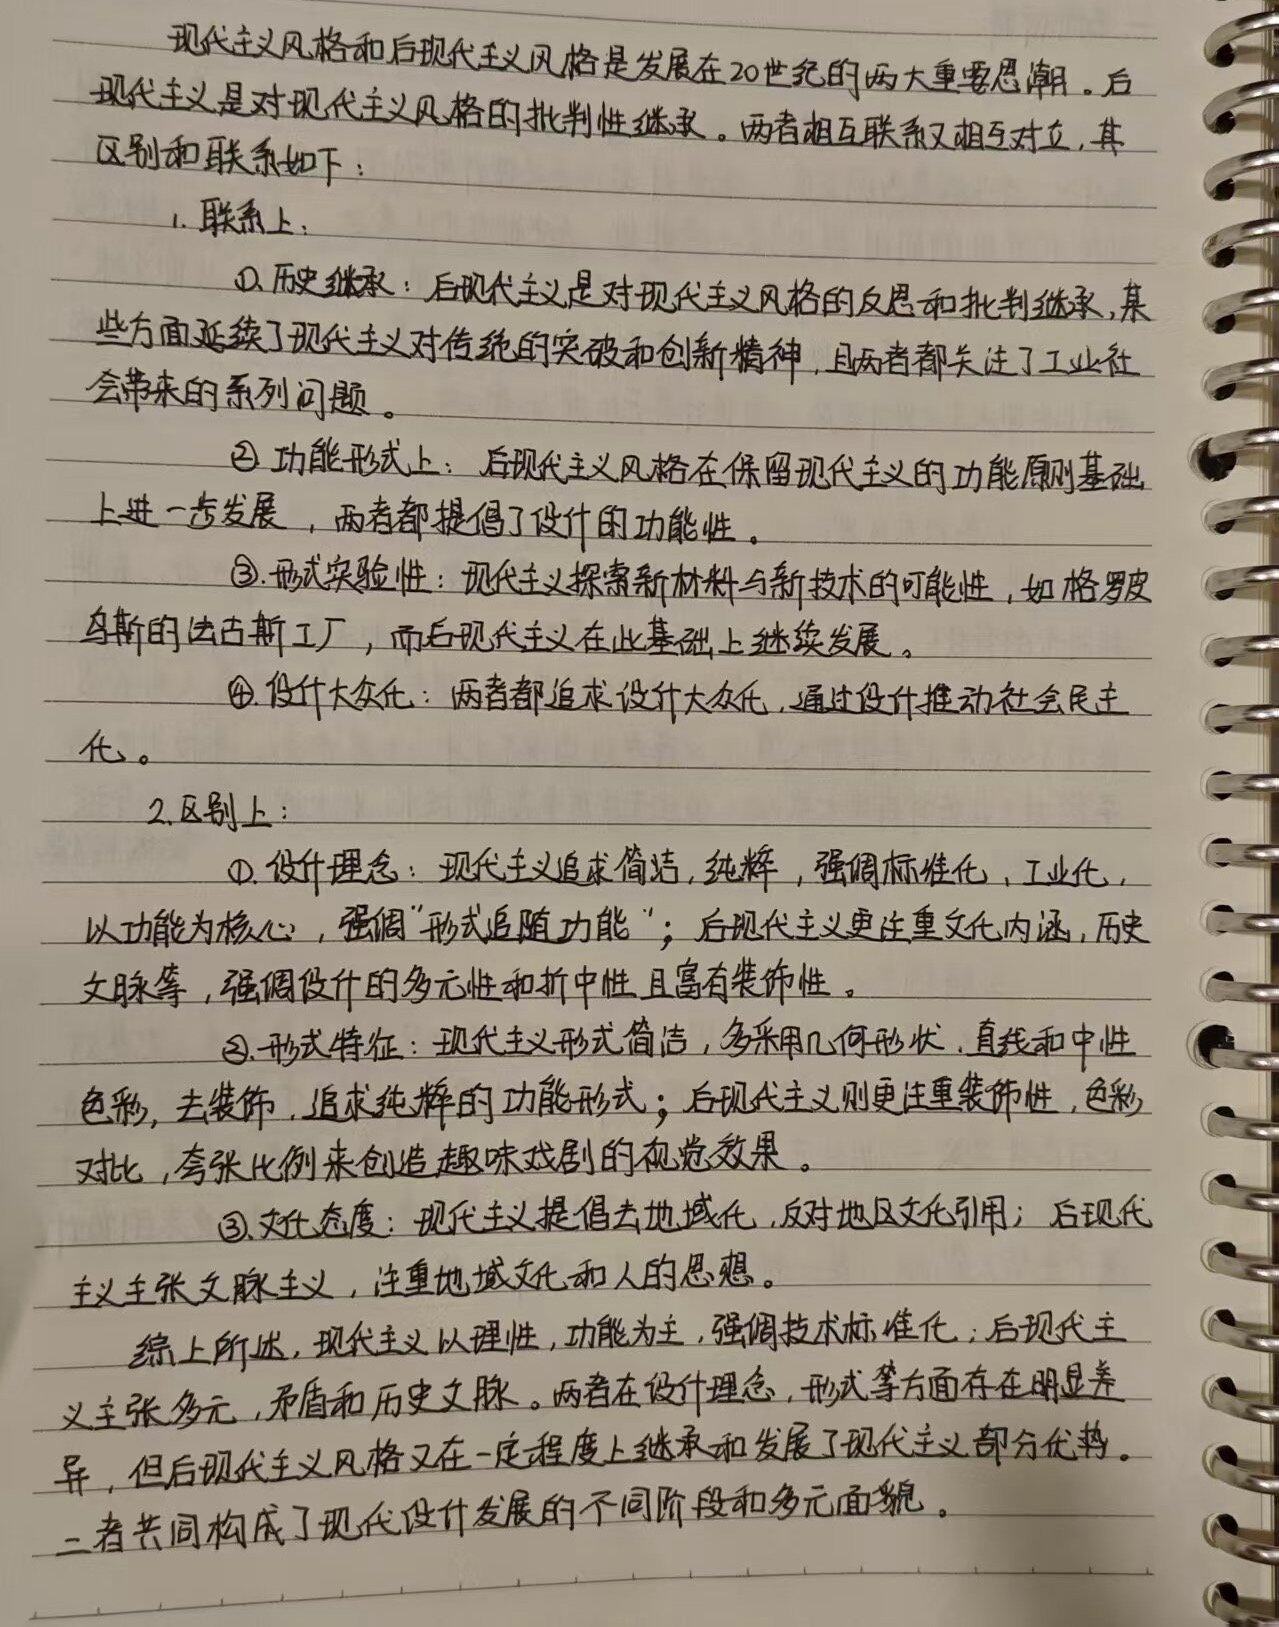 现代主义风格和后现代主义风格是发展在20世纪的两大重要思潮。后
现代主义是对现代主义风格的批判性继承。两者相互联系又相互对立，其
区别和联系如下：
1. 联系上：
①. 历史继承：后现代主义是对现代主义风格的反思和批判继承，某
些方面延续了现代主义对传统的突破和创新精神，且两者都关注了工业社
会带来的系列问题。
② 功能形式上：后现代主义风格在保留现代主义的功能原则基础
上进一步发展，两者都提倡了设计的功能性。
③. 形式实验性：现代主义探索新材料与新技术的可能性，如格罗皮
乌斯的法古斯工厂，而后现代主义在此基础上继续发展。
④. 设计大众化：两者都追求设计大众化，通过设计推动社会民主
化。
2. 区别上：
①. 设计理念：现代主义追求简洁，纯粹，强调标准化、工业化，
以功能为核心，强调“形式追随功能”；后现代主义更注重文化内涵，历史
文脉等，强调设计的多元性和折中性且富有装饰性。
②. 形式特征：现代主义形式简洁，多采用几何形状、直线和中性
色彩，去装饰，追求纯粹的功能形式；后现代主义则更注重装饰性，色彩
对比，夸张比例来创造趣味戏剧的视觉效果。
③. 文化态度：现代主义提倡去地域化，反对地区文化引用；后现代
主义主张文脉主义，注重地域文化和人的思想。
综上所述，现代主义以理性，功能为主，强调技术标准化；后现代主
义主张多元，矛盾和历史文脉。两者在设计理念，形式等方面存在明显差
异，但后现代主义风格又在一定程度上继承和发展了现代主义部分优势。
二者共同构成了现代设计发展的不同阶段和多元面貌。